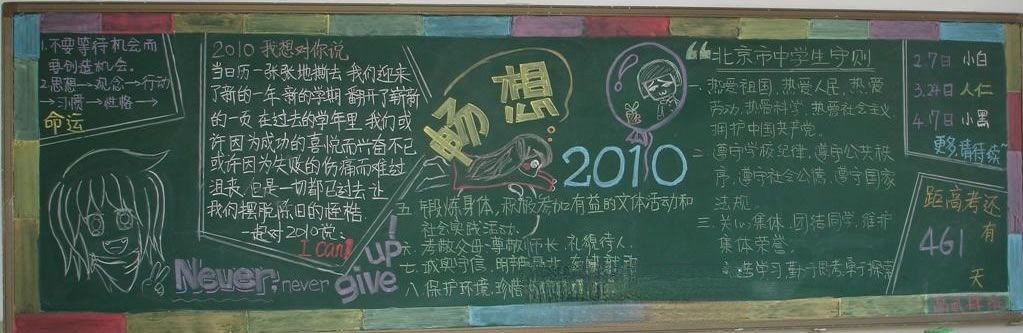 1.不要等待机会而
要创造机会。
2.思想→观念→行动
→习惯→性格→
命运
2010 我想对你说
当日历一张张地撕去 我们迎来
了新的一年 新的学期 翻开了崭新
的一页 在过去的学年里 我们或
许因为成功的喜悦而兴奋不已
或许因为失败的伤痛而难过
沮丧 但是一切都已过去 让
我们摆脱陈旧的桎梏
一起对2010说:
I can!
Never, never
give up!
畅想
2010
北京市中学生守则
一、热爱祖国，热爱人民，热爱
劳动，热爱科学，热爱社会主义
拥护中国共产党。
二、遵守学校纪律，遵守公共秩
序，遵守社会公德，遵守国家
法规。
三、关心集体，团结同学，维护
集体荣誉
学习 勤于思考 乐于探究
五、锻炼身体，积极参加有益的文体活动和
社会实践活动。
六、孝敬父母·尊敬师长，礼貌待人.
七、诚实守信，明辨是非
八、保护环境，珍惜
2.7日 小白
3.24日 人仁
4.7日 小黑
更多请待续~
距高考还
有
461
天